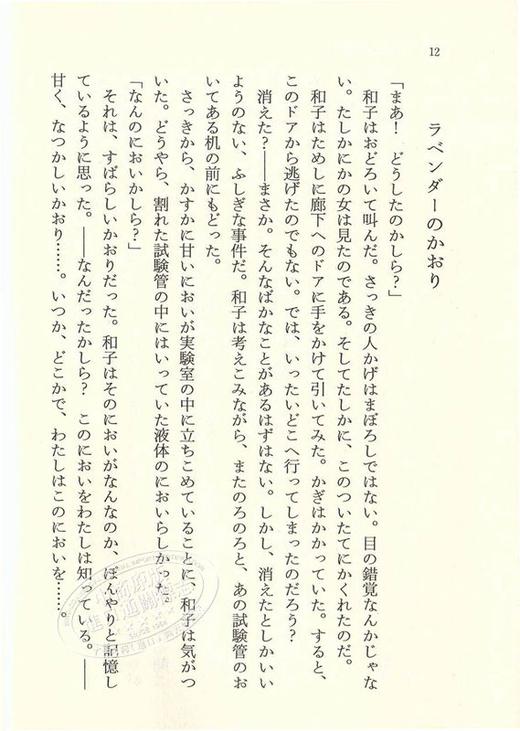 12
ラベンダーのかおり
「まあ！　どうしたのかしら？」
　和子はおどろいて叫んだ。さっきの人かげはまぼろしではない。目の錯覚なんかじゃな
い。たしかにかの女は見たのである。そしてたしかに、このついたてにかくれたのだ。
　和子はためしに廊下へのドアに手をかけて引いてみた。かぎはかかっていた。すると、
このドアから逃げたのでもない。では、いったいどこへ行ってしまったのだろう？
　消えた？――まさか。そんなばかなことがあるはずはない。しかし、消えたとしかいい
ようのない、ふしぎな事件だ。和子は考えこみながら、またのろのろと、あの試験管のお
いてある机の前にもどった。
　さっきから、かすかに甘いにおいが実験室の中に立ちこめていることに、和子は気がつ
いた。どうやら、割れた試験管の中にはいっていた液体のにおいらしかった。
「なんのにおいかしら？」
　それは、すばらしいかおりだった。和子はそのにおいがなんなのか、ぼんやりと記憶し
ているように思った。――なんだったかしら？　このにおいをわたしは知っている。――
甘く、なつかしいかおり……。いつか、どこかで、わたしはこのにおいを……。